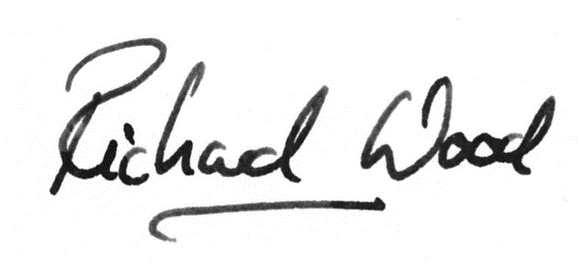 Richard Wood